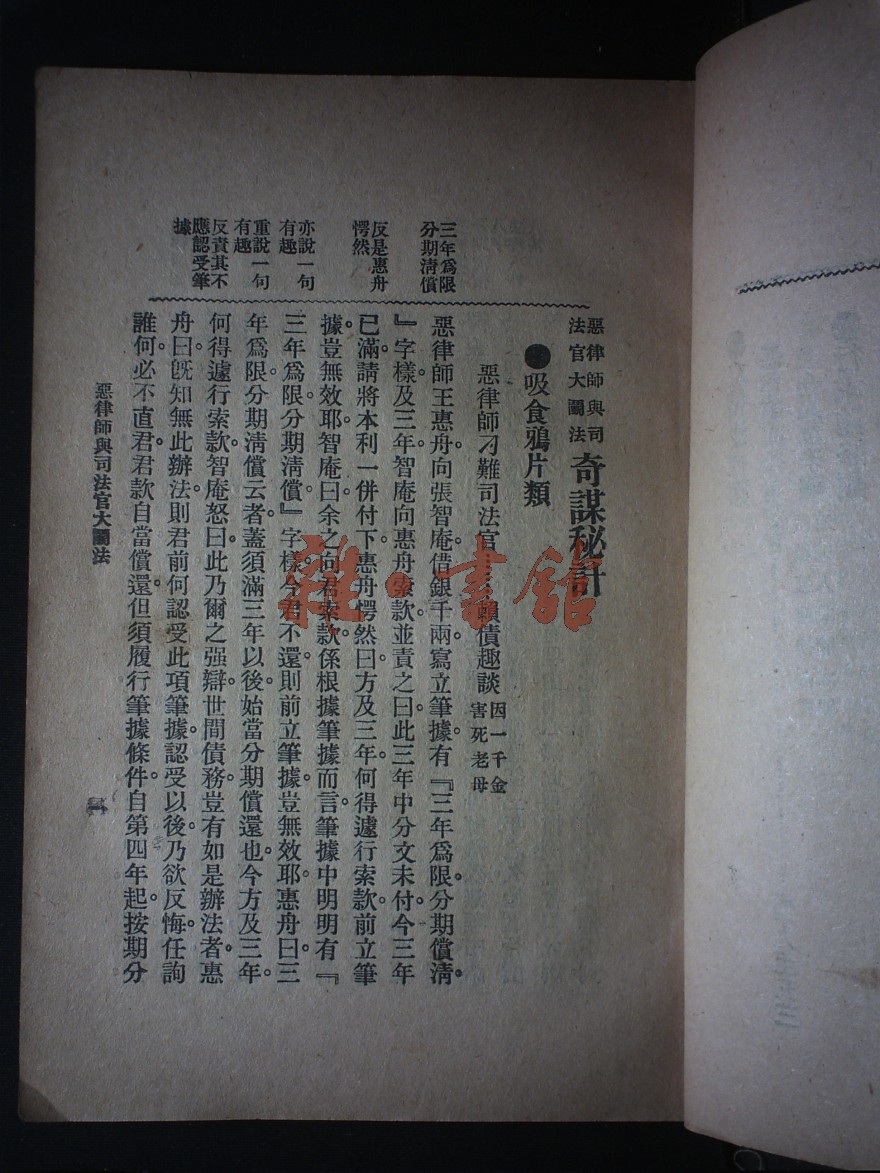 惡律師與司
法官大鬭法
奇謀秘計
吸食鴉片類
惡律師刁難司法官……賴債趣談
因一千金
害死老母
三年爲限
分期淸償
惡律師王惠舟。向張智庵。借銀千兩。寫立筆據。有『三年爲限。分期償淸。
』字樣。及三年。智庵向惠舟索款。並責之曰。此三年中。分文未付。今三年
反是惠舟
愕然
已滿。請將本利一併付下。惠舟愕然曰。方及三年。何得遽行索款。前立筆
據。豈無效耶。智庵曰。余之向君索款。係根據筆據而言。筆據中明明有『
亦說一句
有趣
三年爲限。分期淸償。』字樣。今君不還。則前立筆據。豈無效耶。惠舟曰。三
重說一句
有趣
年爲限。分期淸償云者。蓋須滿三年以後。始當分期償還也。今方及三年。
反責其不
應認受筆
據
何得遽行索款。智庵怒曰。此乃爾之强辯。世間債務。豈有如是辦法者。惠
舟曰。旣知無此辦法。則君前何認受此項筆據。認受以後。乃欲反悔。任詢
誰何。必不直君。君款自當償還。但須履行筆據條件。自第四年起。按期分
惡律師與司法官大鬭法
一
雜·書館